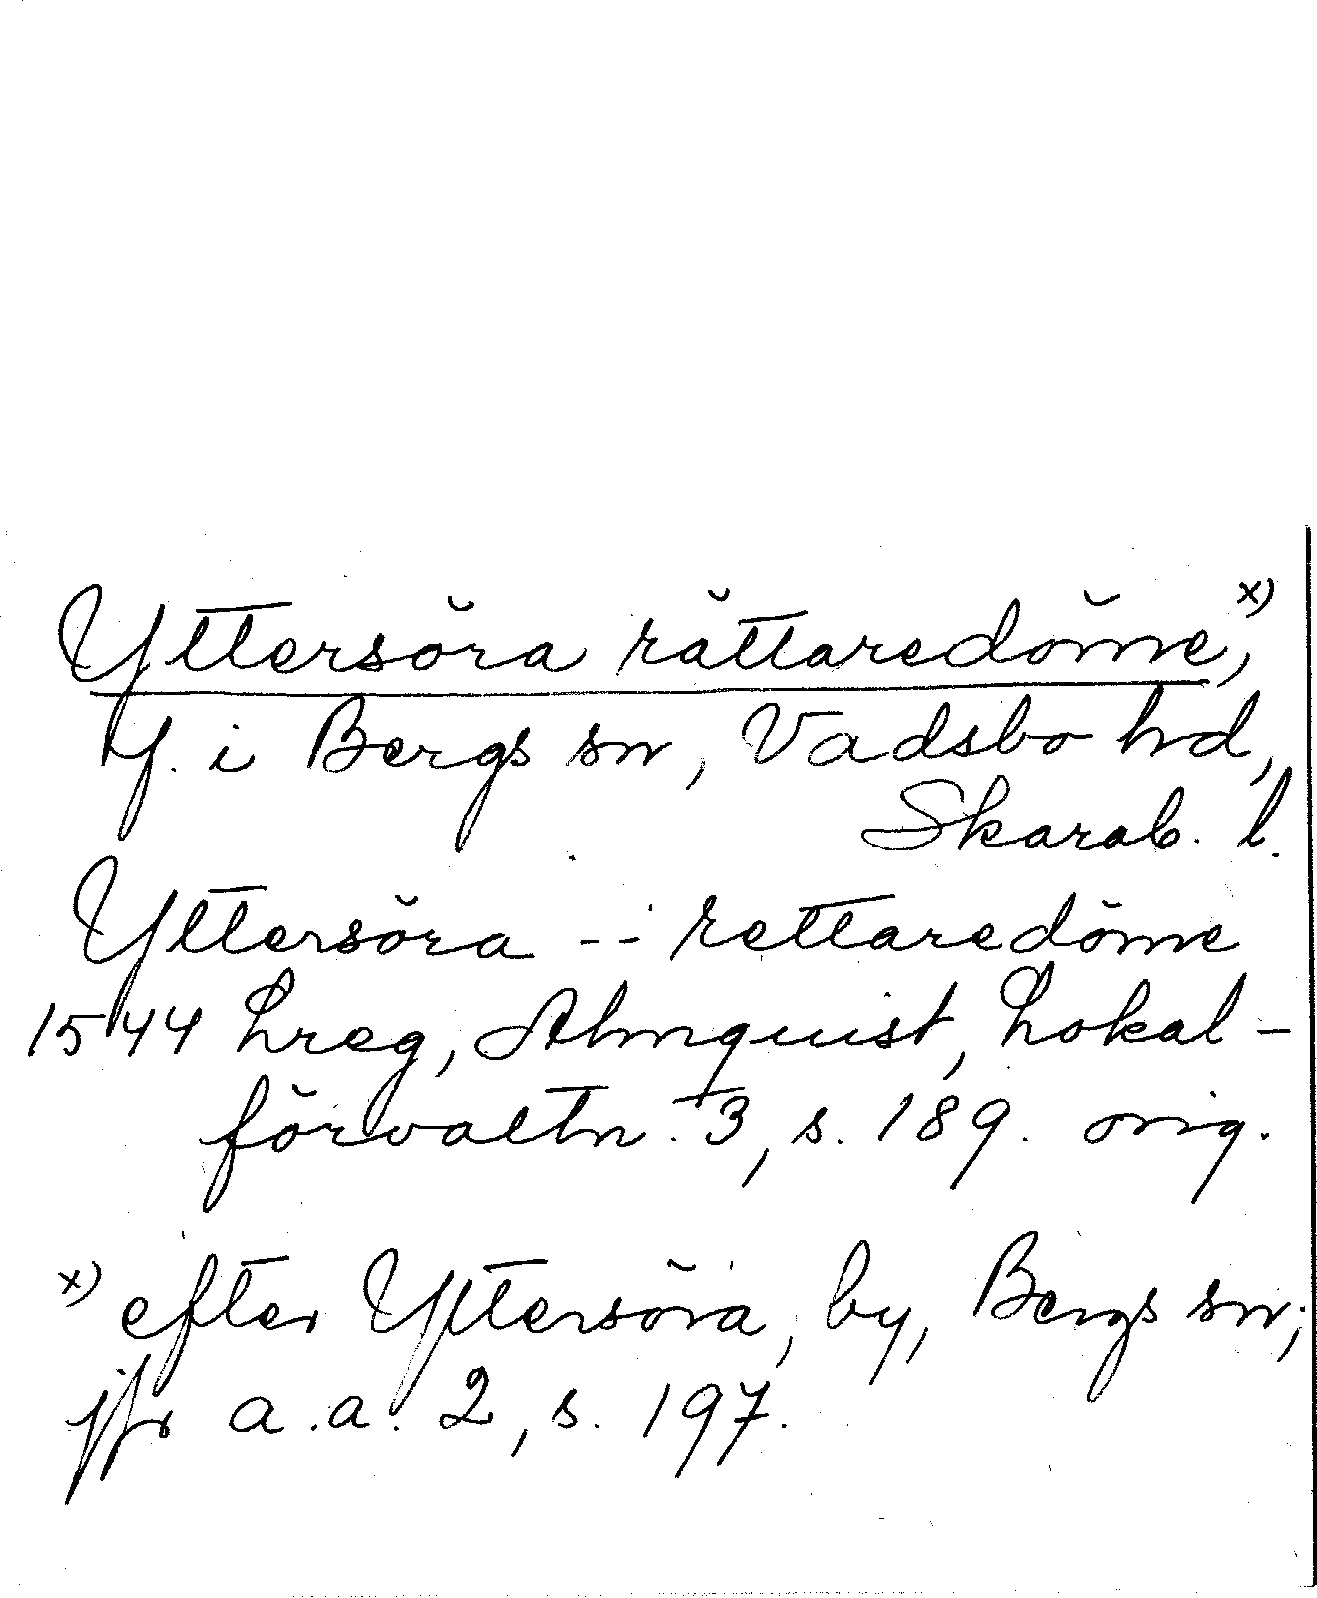 Yttersöra rättaredöme,ˣ⁾
Y. i Bergs sn, Vadsbo hd,
Skarab. l.
Yttersöra -- rettaredöme
1544 Lreg, Almquist, Lokal-
förvaltn. 3, s. 189. orig.
ˣ⁾ efter Yttersöra, by, Bergs sn;
jfr a.a. 2, s. 197.